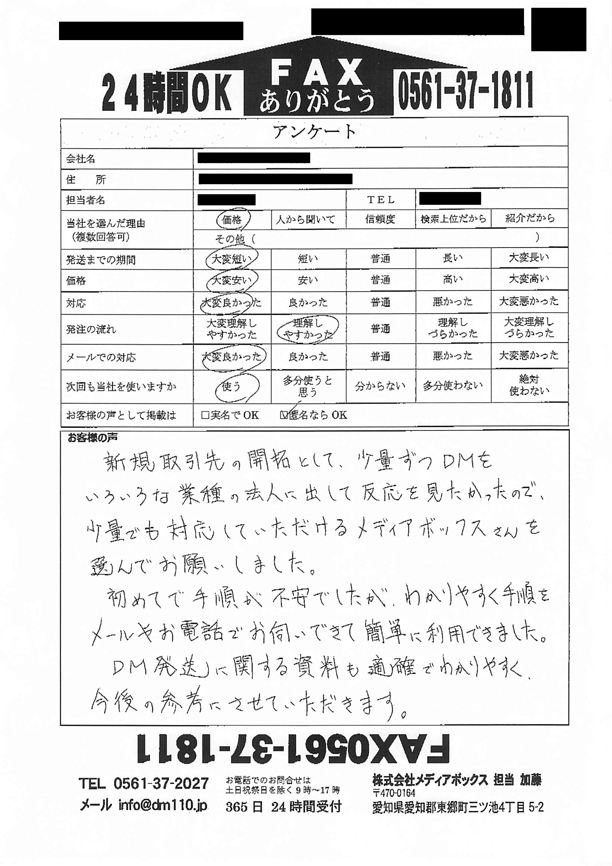 24時間OK
FAX
ありがとう
0561-37-1811
アンケート
会社名
住　所
担当者名　TEL
当社を選んだ理由（複数回答可）　価格　人から聞いて　信頼度　検索上位だから　紹介だから
その他（　）
発送までの期間　大変短い　短い　普通　長い　大変長い
価格　大変安い　安い　普通　高い　大変高い
対応　大変良かった　良かった　普通　悪かった　大変悪かった
発注の流れ　大変理解しやすかった　理解しやすかった　普通　理解しづらかった　大変理解しづらかった
メールでの対応　大変良かった　良かった　普通　悪かった　大変悪かった
次回も当社を使いますか　使う　多分使うと思う　分からない　多分使わない　絶対使わない
お客様の声として掲載は　□実名でOK　☑匿名ならOK
お客様の声
新規取引先の開拓として、少量ずつDMを
いろいろな業種の法人に出して反応を見たかったので、
少量でも対応していただけるメディアボックスさんを
選んでお願いしました。
初めてで手順が不安でしたが、わかりやすく手順を
メールやお電話でお伺いできて簡単に利用できました。
DM発送に関する資料も適確でわかりやすく、
今後の参考にさせていただきます。
FAX0561-37-1811
TEL 0561-37-2027
メール info@dm110.jp
お電話でのお問合せは
土日祝祭日を除く9時～17時
365日 24時間受付
株式会社メディアボックス 担当 加藤
〒470-0164
愛知県愛知郡東郷町三ツ池4丁目5-2